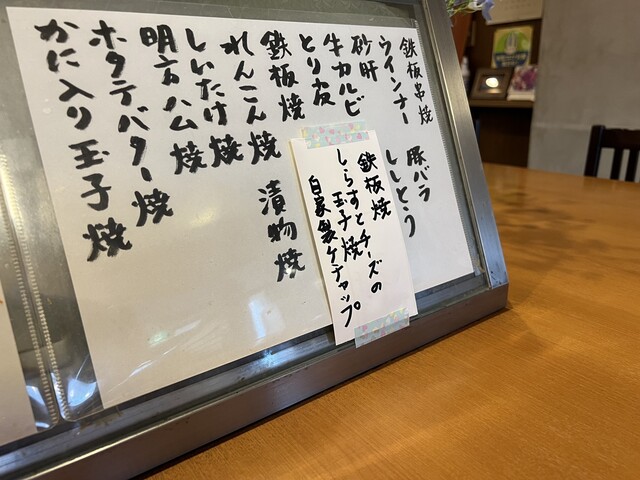 鉄板串焼
ウインナー 豚バラ
砂肝 ししとう
牛カルビ
とり皮
鉄板焼 漬物焼
れんこん焼
しいたけ焼
明方ハム焼
ホタテバター焼
かに入り玉子焼
鉄板焼
しらすとチーズの
玉子焼
自家製ケチャップ